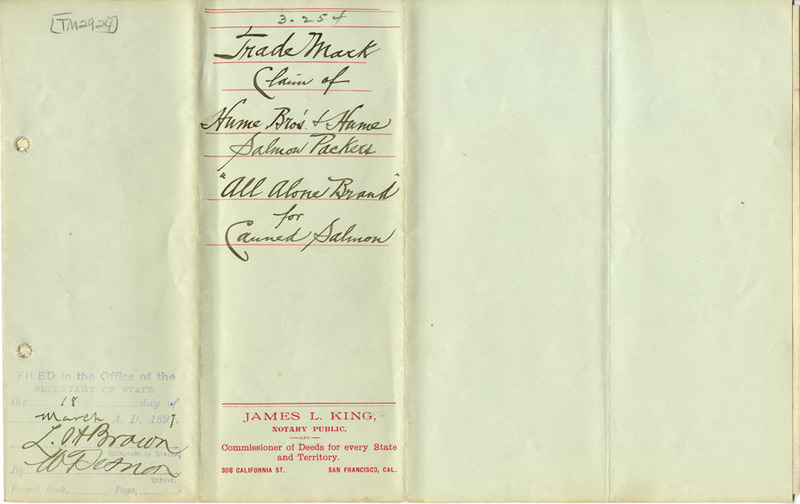 [TM2924]
3-254
Trade Mark
Claim of
Hume Bro's. & Hume
Salmon Packers
"All Alone Brand"
for
Canned Salmon
JAMES L. KING,
NOTARY PUBLIC,
—AND—
Commissioner of Deeds for every State
and Territory.
308 CALIFORNIA ST. SAN FRANCISCO, CAL.
FILED in the Office of the
SECRETARY OF STATE
the 18 day of
March A. D. 1897
L. H Brown
SECRETARY OF STATE.
By
DEPUTY.
Record Book, Page,